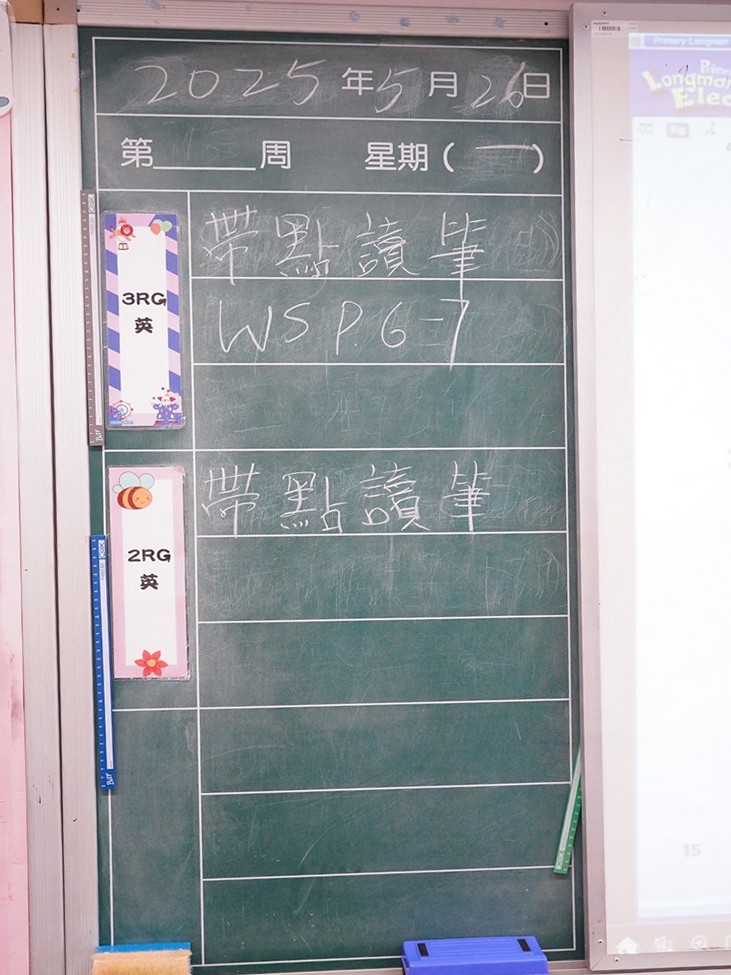 2025年5月26日
第____周 星期(一)
3RG
英
帶點讀筆
WS P.6-7
2RG
英
帶點讀筆
Primary Longman
Longman
Elec
15